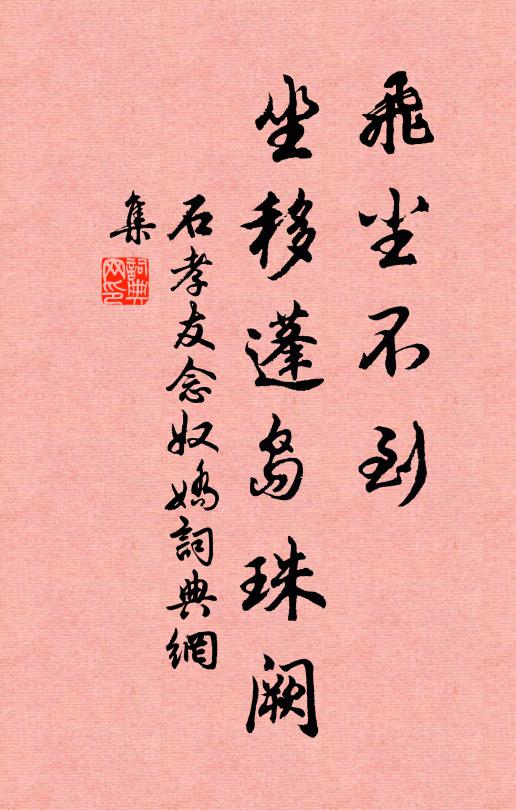 飛尘不到
坐移蓬島珠阙
石孝友念奴嬌詞典網
集
詞典
网印